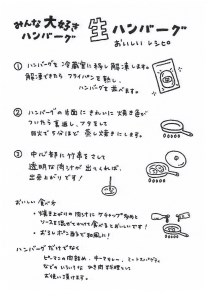 みんな大好き
ハンバーグ
生ハンバーグ
おいしいレシピ
① ハンバーグを冷蔵室に移し解凍します。
解凍できたらフライパンを熱し、
ハンバーグを並べます。
② ハンバーグの片面にきれいに焼き色が
ついたら裏返し、フタをして
弱火で5分ほど蒸し焼きにします。
③ 中心部に竹串をさして
透明な肉汁が出てくれば、
出来上がりです!
おいしい食べ方
・焼き上がりの肉汁にケチャップ、
ソースを混ぜてかけて食べるとおいしいです!
・おろしポン酢で和風に!
ハンバーグだけでなく
ピーマンの肉詰め、キーマカレー、ミートスパゲティ
などの
お使い頂けます。